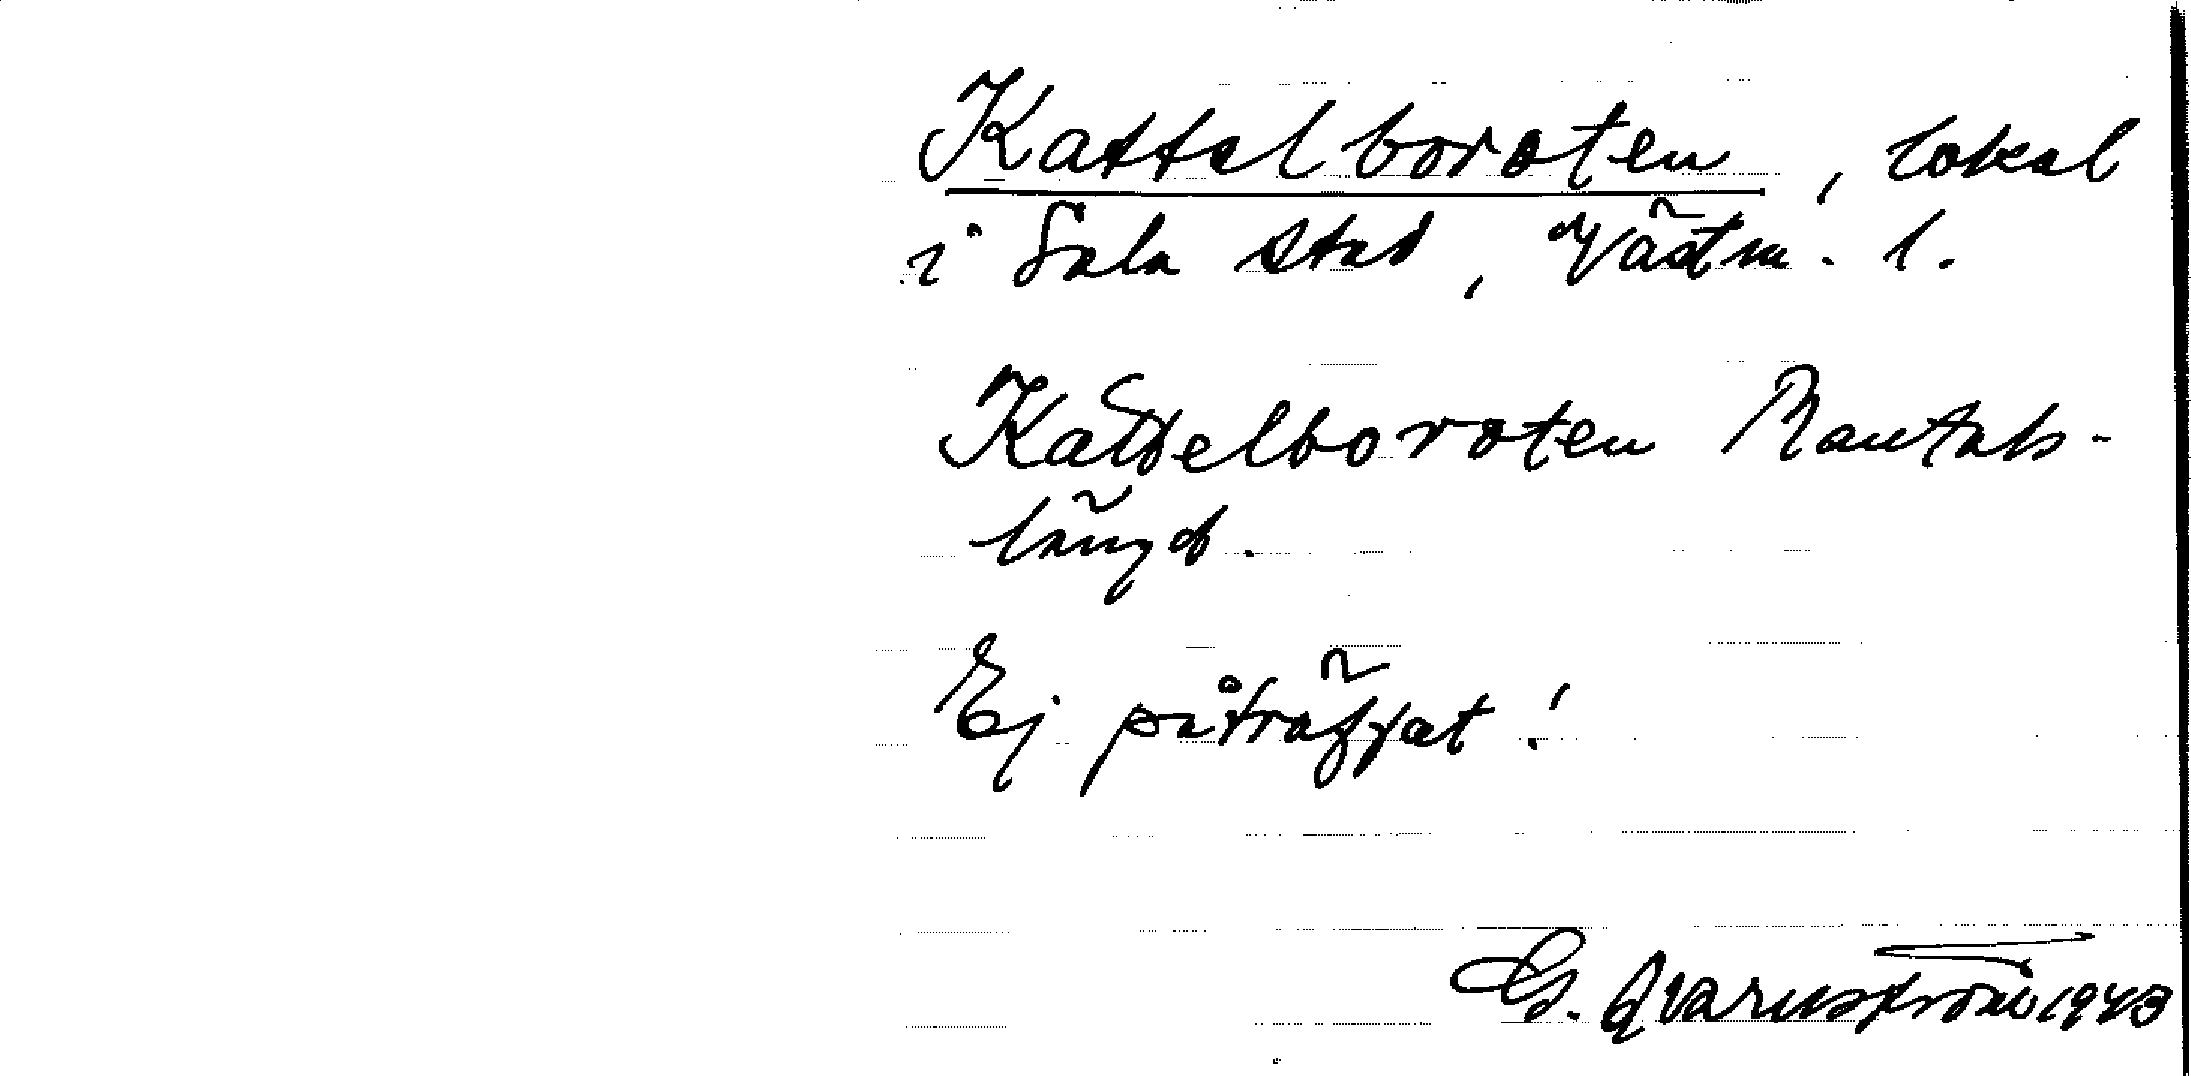 Kattelboroten, lokal
i Sala stad, Västm. l.
Kattelboroten Mantals-
längd.
Ej påträffat!
G. Qvarnström 1943